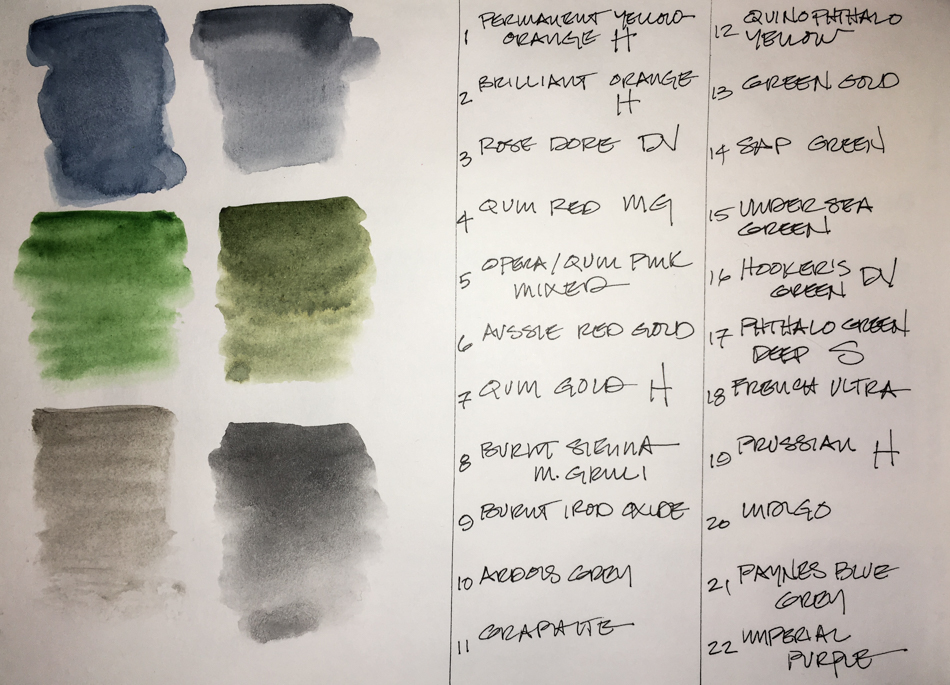 1 PERMANENT YELLOW
ORANGE H
2 BRILLIANT ORANGE
H
3 ROSE DORE DV
4 QUIN RED MG
5 OPERA/QUIN PINK
MIXED
6 AUSSIE RED GOLD
7 QUIN GOLD H
8 BURNT SIENNA
M. GRULI
9 BURNT IRON OXIDE
10 ARDOIS GREY
11 GRAPHITE
12 QUINOPHTHALO
YELLOW
13 GREEN GOLD
14 SAP GREEN
15 UNDERSEA
GREEN
16 HOOKER'S
GREEN DV
17 PHTHALO GREEN
DEEP S
18 FRENCH ULTRA
19 PRUSSIAN H
20 INDIGO
21 PAYNES BLUE
GREY
22 IMPERIAL
PURPLE